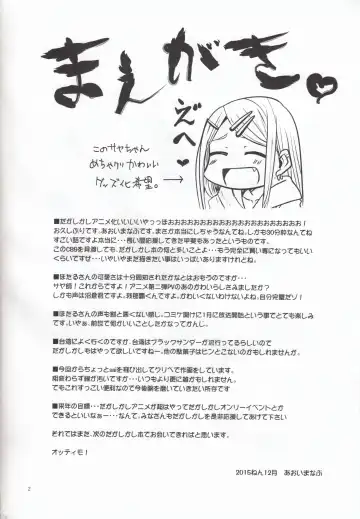 まえがき。
ぎへ
このサヤちゃん
めちゃクソかわいい
グッズ化希望。
■だがしかしアニメ化いいいいやっっほおおおおおおおおおおおおおおおおおおおおおお!
お久しぶりです。あおいまなぶです。まさか本当にしちゃうなんてね。しかも30分枠なんてね
すごい話ですよ本当に…長い間応援してきた甲斐もあったというものです。
このC89を見渡しても、だがしかし本の何と多いことよ…もう完全に買い専になってもいい
くらいですぜ…いやいやまだ描きたい事はいっぱいありますけれどね。
■ほたるさんの可愛さは十分周知されたかなとはおもうのですが…
サヤ師!これからですよ!アニメ第二弾PVのあのかわいらしさみましたか?
しかも声は沼倉君ですよ。残念ながくんですよ。かわいくないわけないよね。自分完璧だゾ!
■ほたるさんの声も脚と善くない感じ。コミケ開けに1月に放送開始という事でとても楽しみ
です。いやぁ、前世で何かいいことしたかなってかんじ。
■台湾によく行くのですが、台湾はブラックサンダーが流行ってるらしいので
だがしかしもはやって欲しいですねー。他の駄菓子はピンとこないのかもしれませんが。
■今回からちょっとsaiを飛び出してクリペで作画をしています。
相変わらず線が汚いですが…いつもより更に雑かもしれません。
でもこれすっごい便利なので今後腕を磨いていきたい所存です
■来年の目標…だがしかしアニメが超はやってだがしかしオンリーイベントとか
できるといいなぁー…なんて、みなさんもだがしかしを是非応援してあげて下さい
それではまた、次のだがしかし本でお会いできればと思います。
オッティモ!
2015ねん12月 あおいまなぶ
2